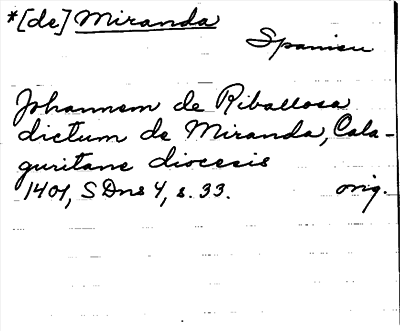 *[de] Miranda
Spanien
Johannem de Riballosa
dictum de Miranda, Cala-
guritane diocesis
1401, SDns 4, s. 33. orig.